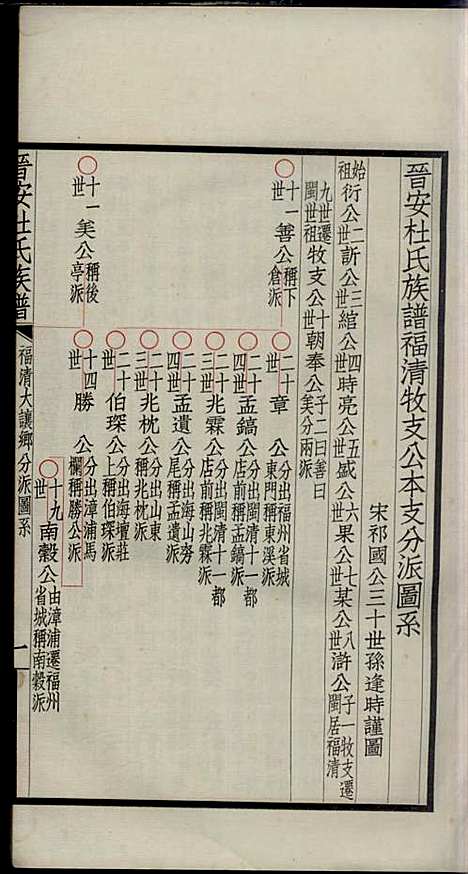 晉安杜氏族譜福清牧支公本支分派圖系
宋祁國公三十世孫逢時謹圖
始祖衍公二世訢公三世綰公四世時亮公五世盛公六世果公七世某公八世滸公子一牧支遷閩居福清
九世遷閩世祖牧支公十世朝奉公子二曰善曰美分兩派
十一世善公稱下倉派
二十世章公分出福州省城東門稱東溪派
二十四世孟鎬公分出閩清十一都店前稱孟鎬派
二十三世兆霖公分出閩清十一都店前稱兆霖派
二十四世孟遺公分出海山旁尾稱孟遺派
二十三世兆枕公分出山東稱兆枕派
二十二世伯琛公分出海壇莊上稱伯琛派
十一世美公稱後亭派
十四世勝公分出漳浦馬欄稱勝公派
十九世南穀公由漳浦遷福州省城稱南穀派
晉安杜氏族譜
福清大讓鄉分派圖系
一